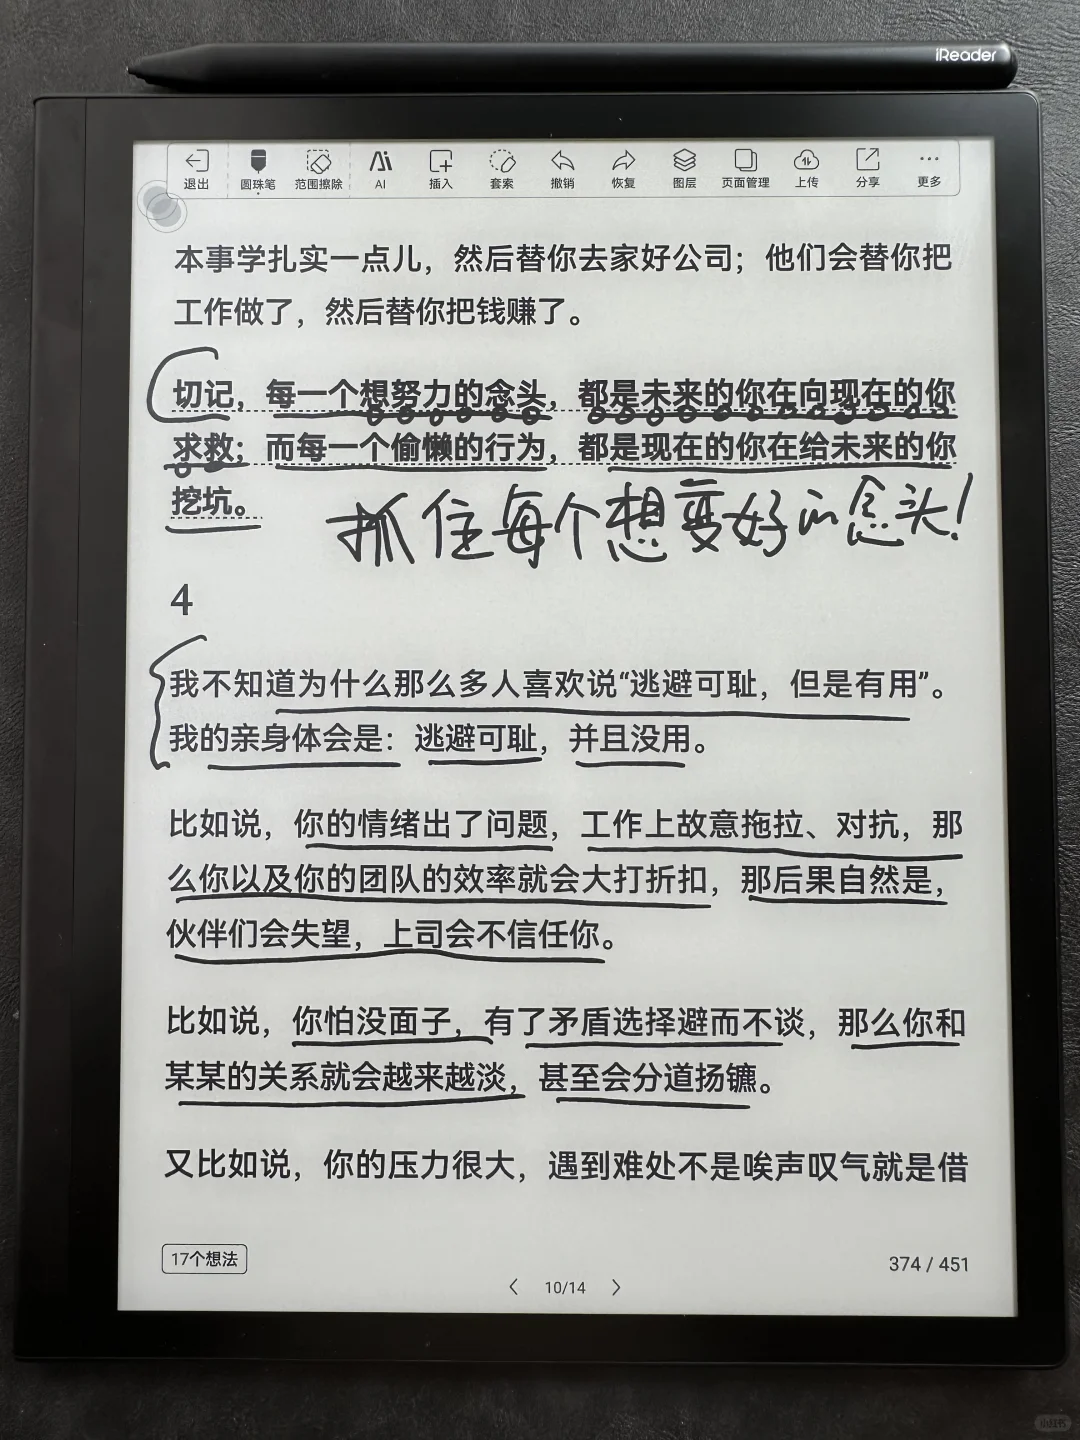 iReader
退出 圆珠笔 范围擦除 AI 插入 套索 撤销 恢复 图层 页面管理 上传 分享 更多
本事学扎实一点儿，然后替你去家好公司；他们会替你把
工作做了，然后替你把钱赚了。
切记，每一个想努力的念头，都是未来的你在向现在的你
求救；而每一个偷懒的行为，都是现在的你在给未来的你
挖坑。
抓住每个想变好的念头！
4
我不知道为什么那么多人喜欢说“逃避可耻，但是有用”。
我的亲身体会是：逃避可耻，并且没用。
比如说，你的情绪出了问题，工作上故意拖拉、对抗，那
么你以及你的团队的效率就会大打折扣，那后果自然是，
伙伴们会失望，上司会不信任你。
比如说，你怕没面子，有了矛盾选择避而不谈，那么你和
某某的关系就会越来越淡，甚至会分道扬镳。
又比如说，你的压力很大，遇到难处不是唉声叹气就是借
17个想法
374 / 451
10/14
小红书